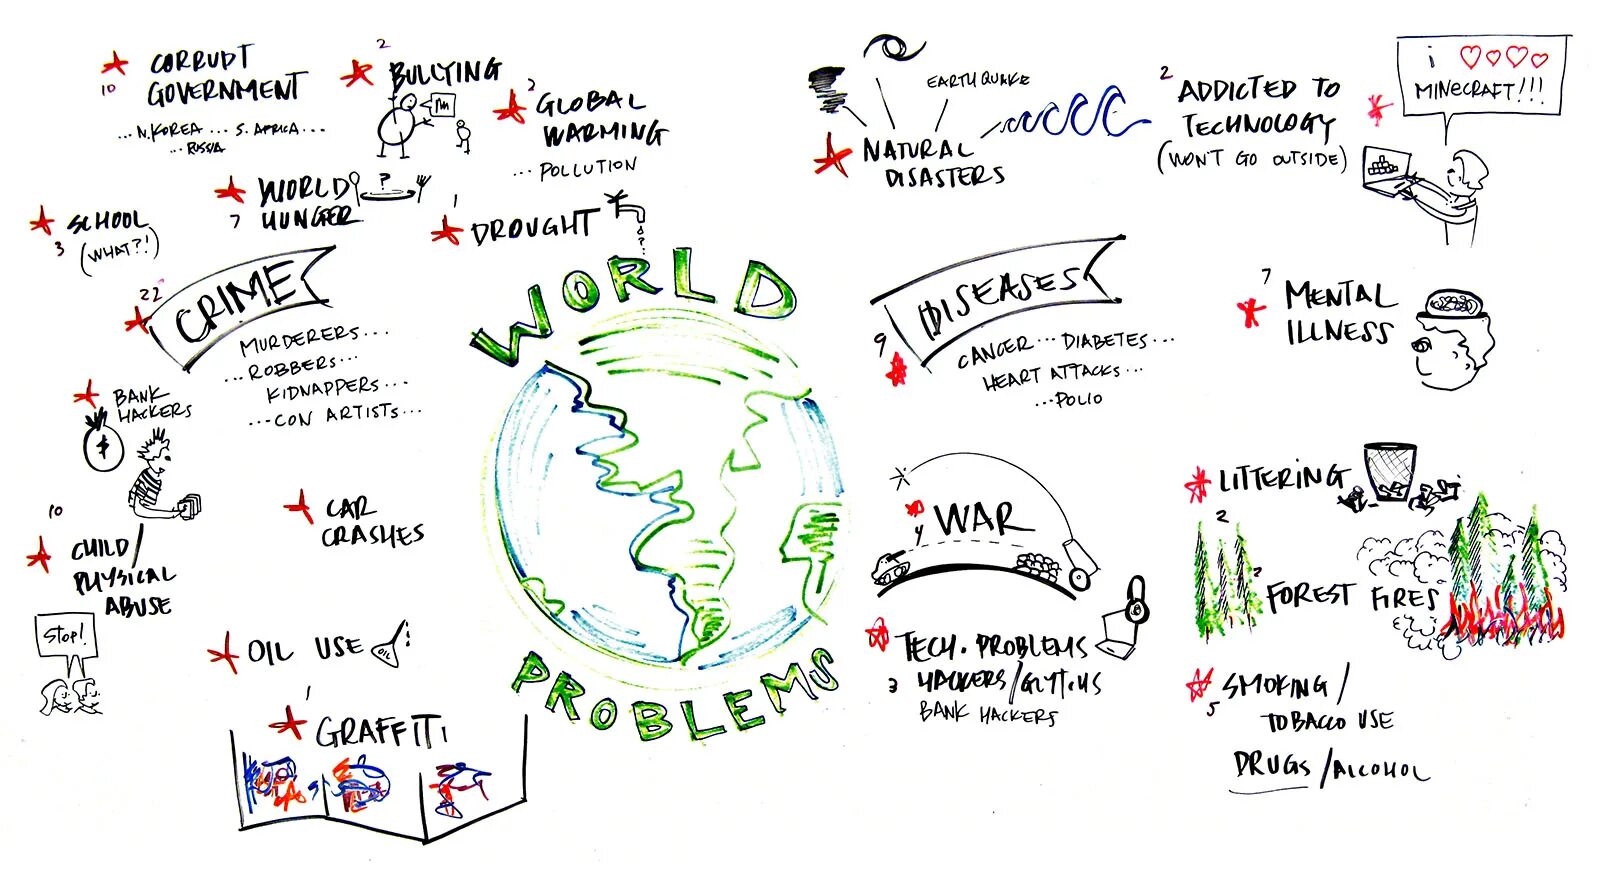 CORRUPT
GOVERNMENT
10
...N.KOREA...S.AFRICA...
...RUSSIA
2
BULLYING
2
GLOBAL
WARMING
...POLLUTION
WORLD
HUNGER
7
?
1
DROUGHT
?
SCHOOL
3
(WHAT?!)
22
CRIME
MURDERERS...
...ROBBERS...
KIDNAPPERS...
...CON ARTISTS...
BANK
HACKERS
$
10
CHILD/
PHYSICAL
ABUSE
STOP!
CAR
CRASHES
OIL USE
OIL
1
GRAFFITI
WORLD
PROBLEMS
EARTHQUAKE
NATURAL
DISASTERS
2
ADDICTED TO
TECHNOLOGY
(WON'T GO OUTSIDE)
i ♡♡♡♡
MINECRAFT!!!
9
DISEASES
CANCER...DIABETES...
HEART ATTACKS...
...POLIO
7
MENTAL
ILLNESS
4
WAR
LITTERING
2
2
FOREST FIRES
TECH. PROBLEMS
3
HACKERS/GLITCHES
BANK HACKERS
5
SMOKING/
TOBACCO USE
DRUGS/ALCOHOL